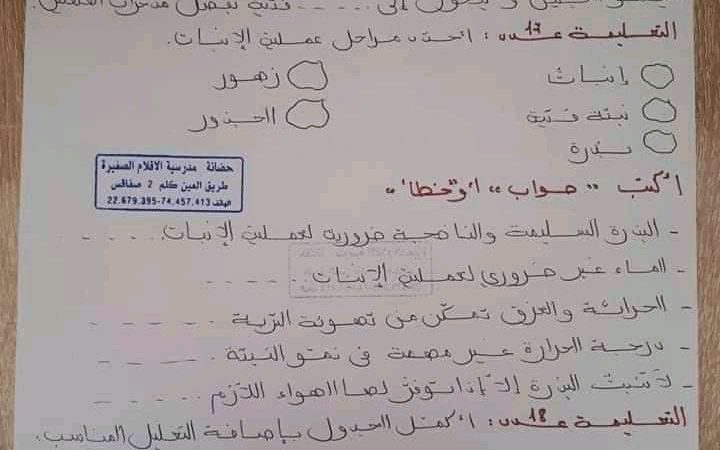 التعليمة عدد 17: أحدد مراحل عملية الإنبات.
إنبات
زهور
نبتة فتية
الجذور
بذرة
حضانة مدرسية الاقلام الصغيرة
طريق العين كلم 2 صفاقس
الهاتف 74.457.413-22.679.395
أكتب "صواب" أو "خطأ"
- البذرة السليمة والناضجة ضرورية لعملية الإنبات. - - - -
- الماء غير ضروري لعملية الإنبات. - - - -
- الحراثة والعزق تمكّن من تهوئة التربة - - - -
- درجة الحرارة غير مهمة في نمو النبتة - - - -
- لا تنبت البذرة إلا إذا توفّر لها الهواء اللازم - - - -
التعليمة عدد 18: أكمل الجدول بإضافة التعليل المناسب.